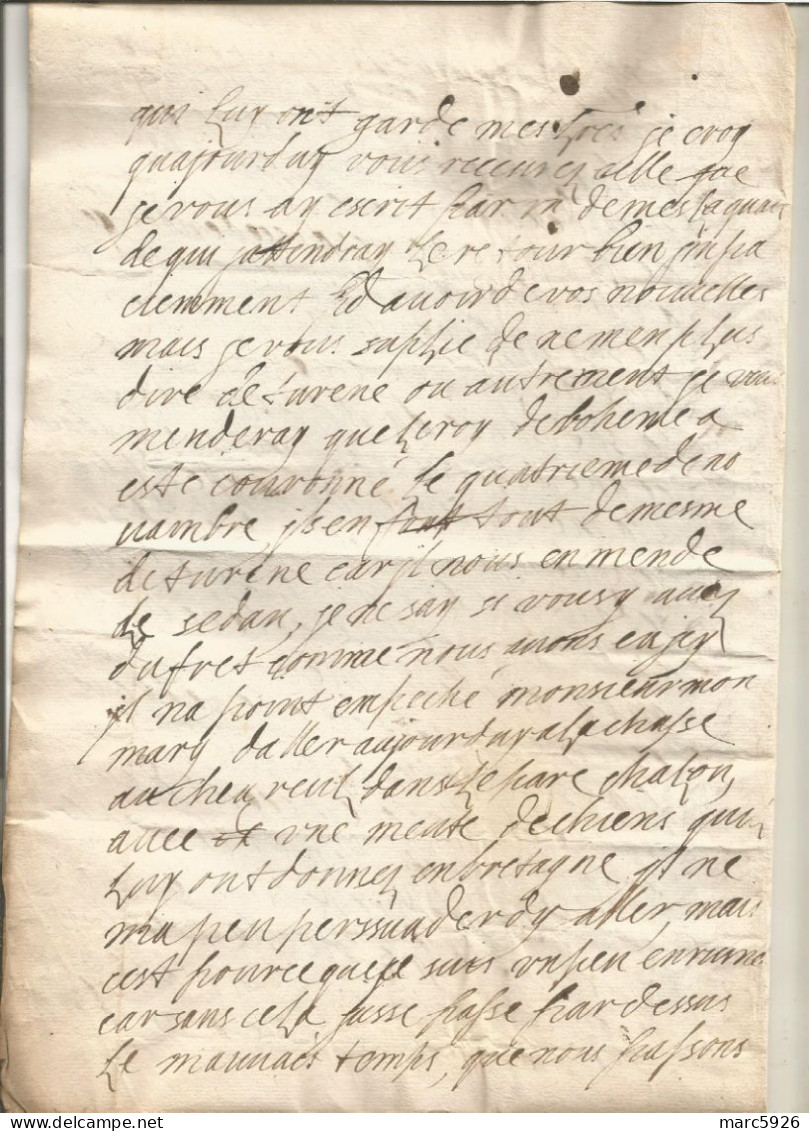 qui luy ont garde mes lres je croy
quajourduy vous receures celle que
je vous ay escrit par un de mes laquais
de qui jattendray le retour bien jnpa
ciemment Ed avoir de vos nouvelles
mais je vous suplie de ne men plus
dire de turene ou autrement je vous
menderay que le roy de boheme a
este couronné le quatrieme de no
vambre, jls en font tout de mesme
de turene car jl nous en mende
de sedan, je ne say si vous y aues
du fret comme nous avons en jey
jl na point empeché monsieur mon
mary daller aujourduy a la chasse
au cheureul dans le parc chalon,
avec une meute de chiens quil
luy ont donnes en bretagne jl ne
ma peu perssuader dy aller, mais
cest pource que je suis un peu enrume
car sans cela jusse passe par dessus
le mauvais temps, que nous passons
marc5926